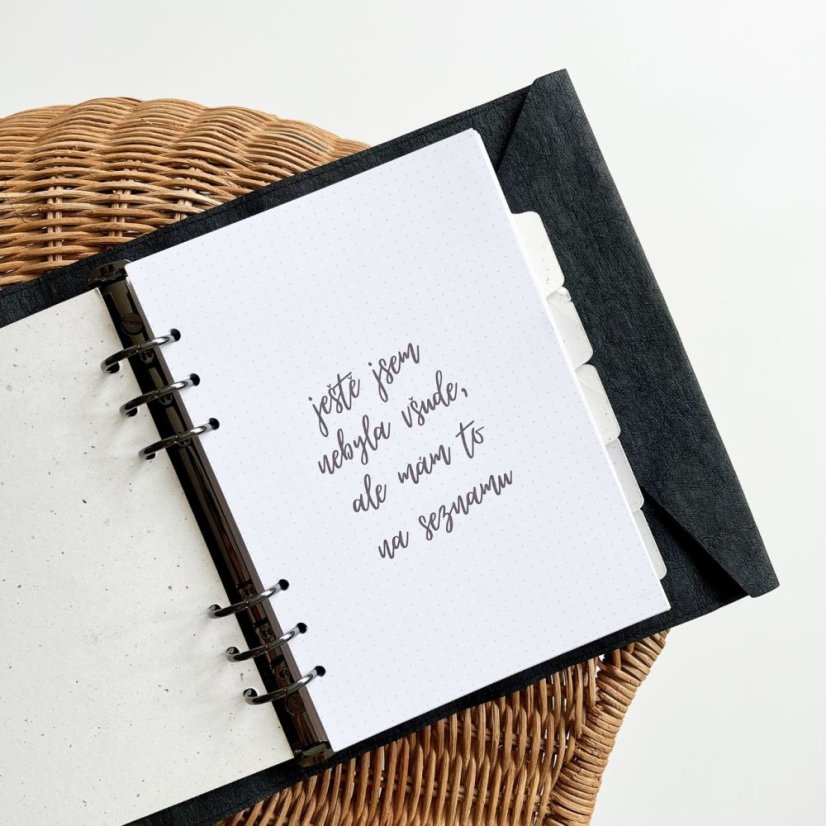 ještě jsem
nebyla všude,
ale mám to
na seznamu